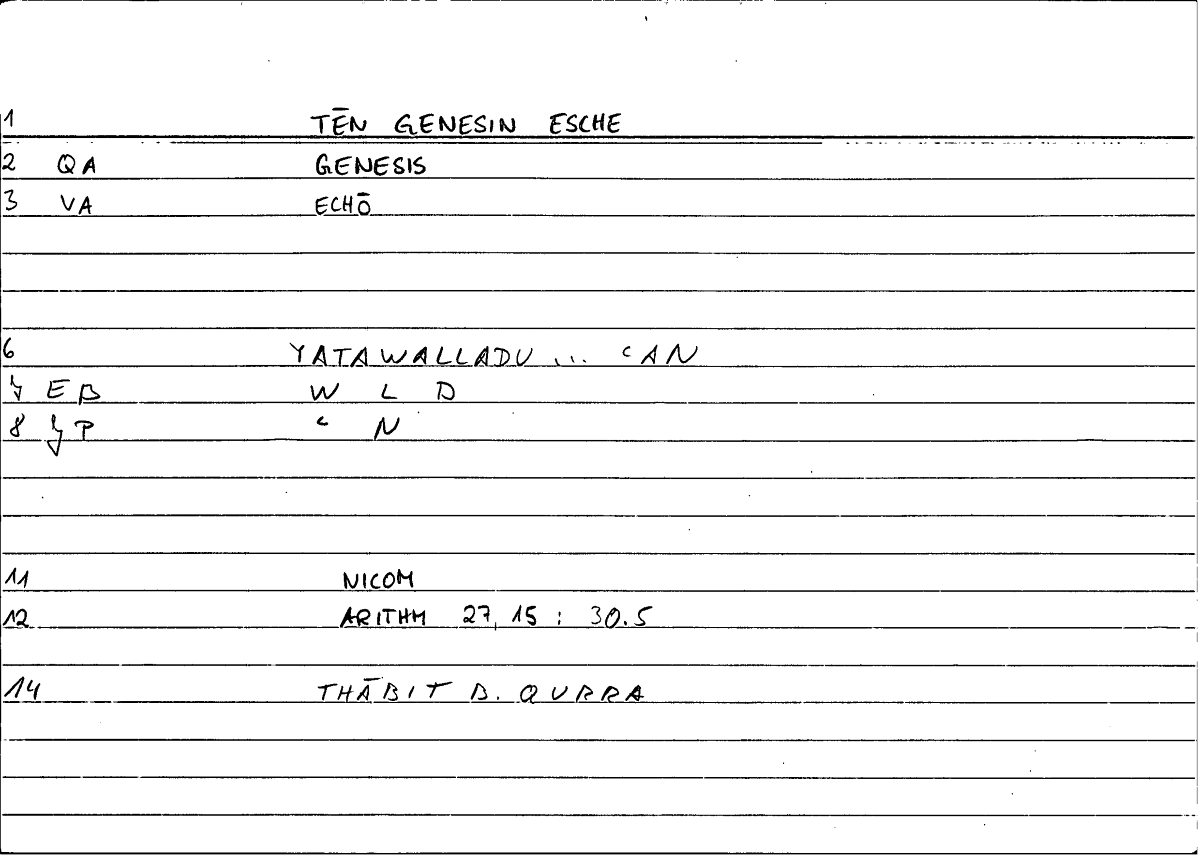 1 TĒN GENESIN ESCHE
2 QA GENESIS
3 VA ECHŌ
6 YATAWALLADU ... ʿAN
7 EB W L D
8 P ʿ N
11 NICOM
12 ARITHM 27,15 : 30.5
14 THĀBIT B. QURRA